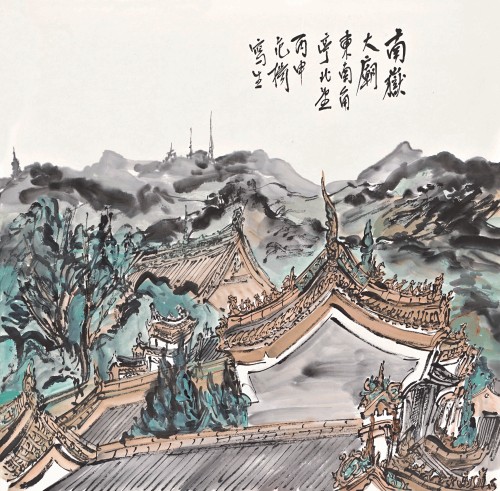 南嶽
大廟
東南角
亭北望
丙申
范樹
寫生